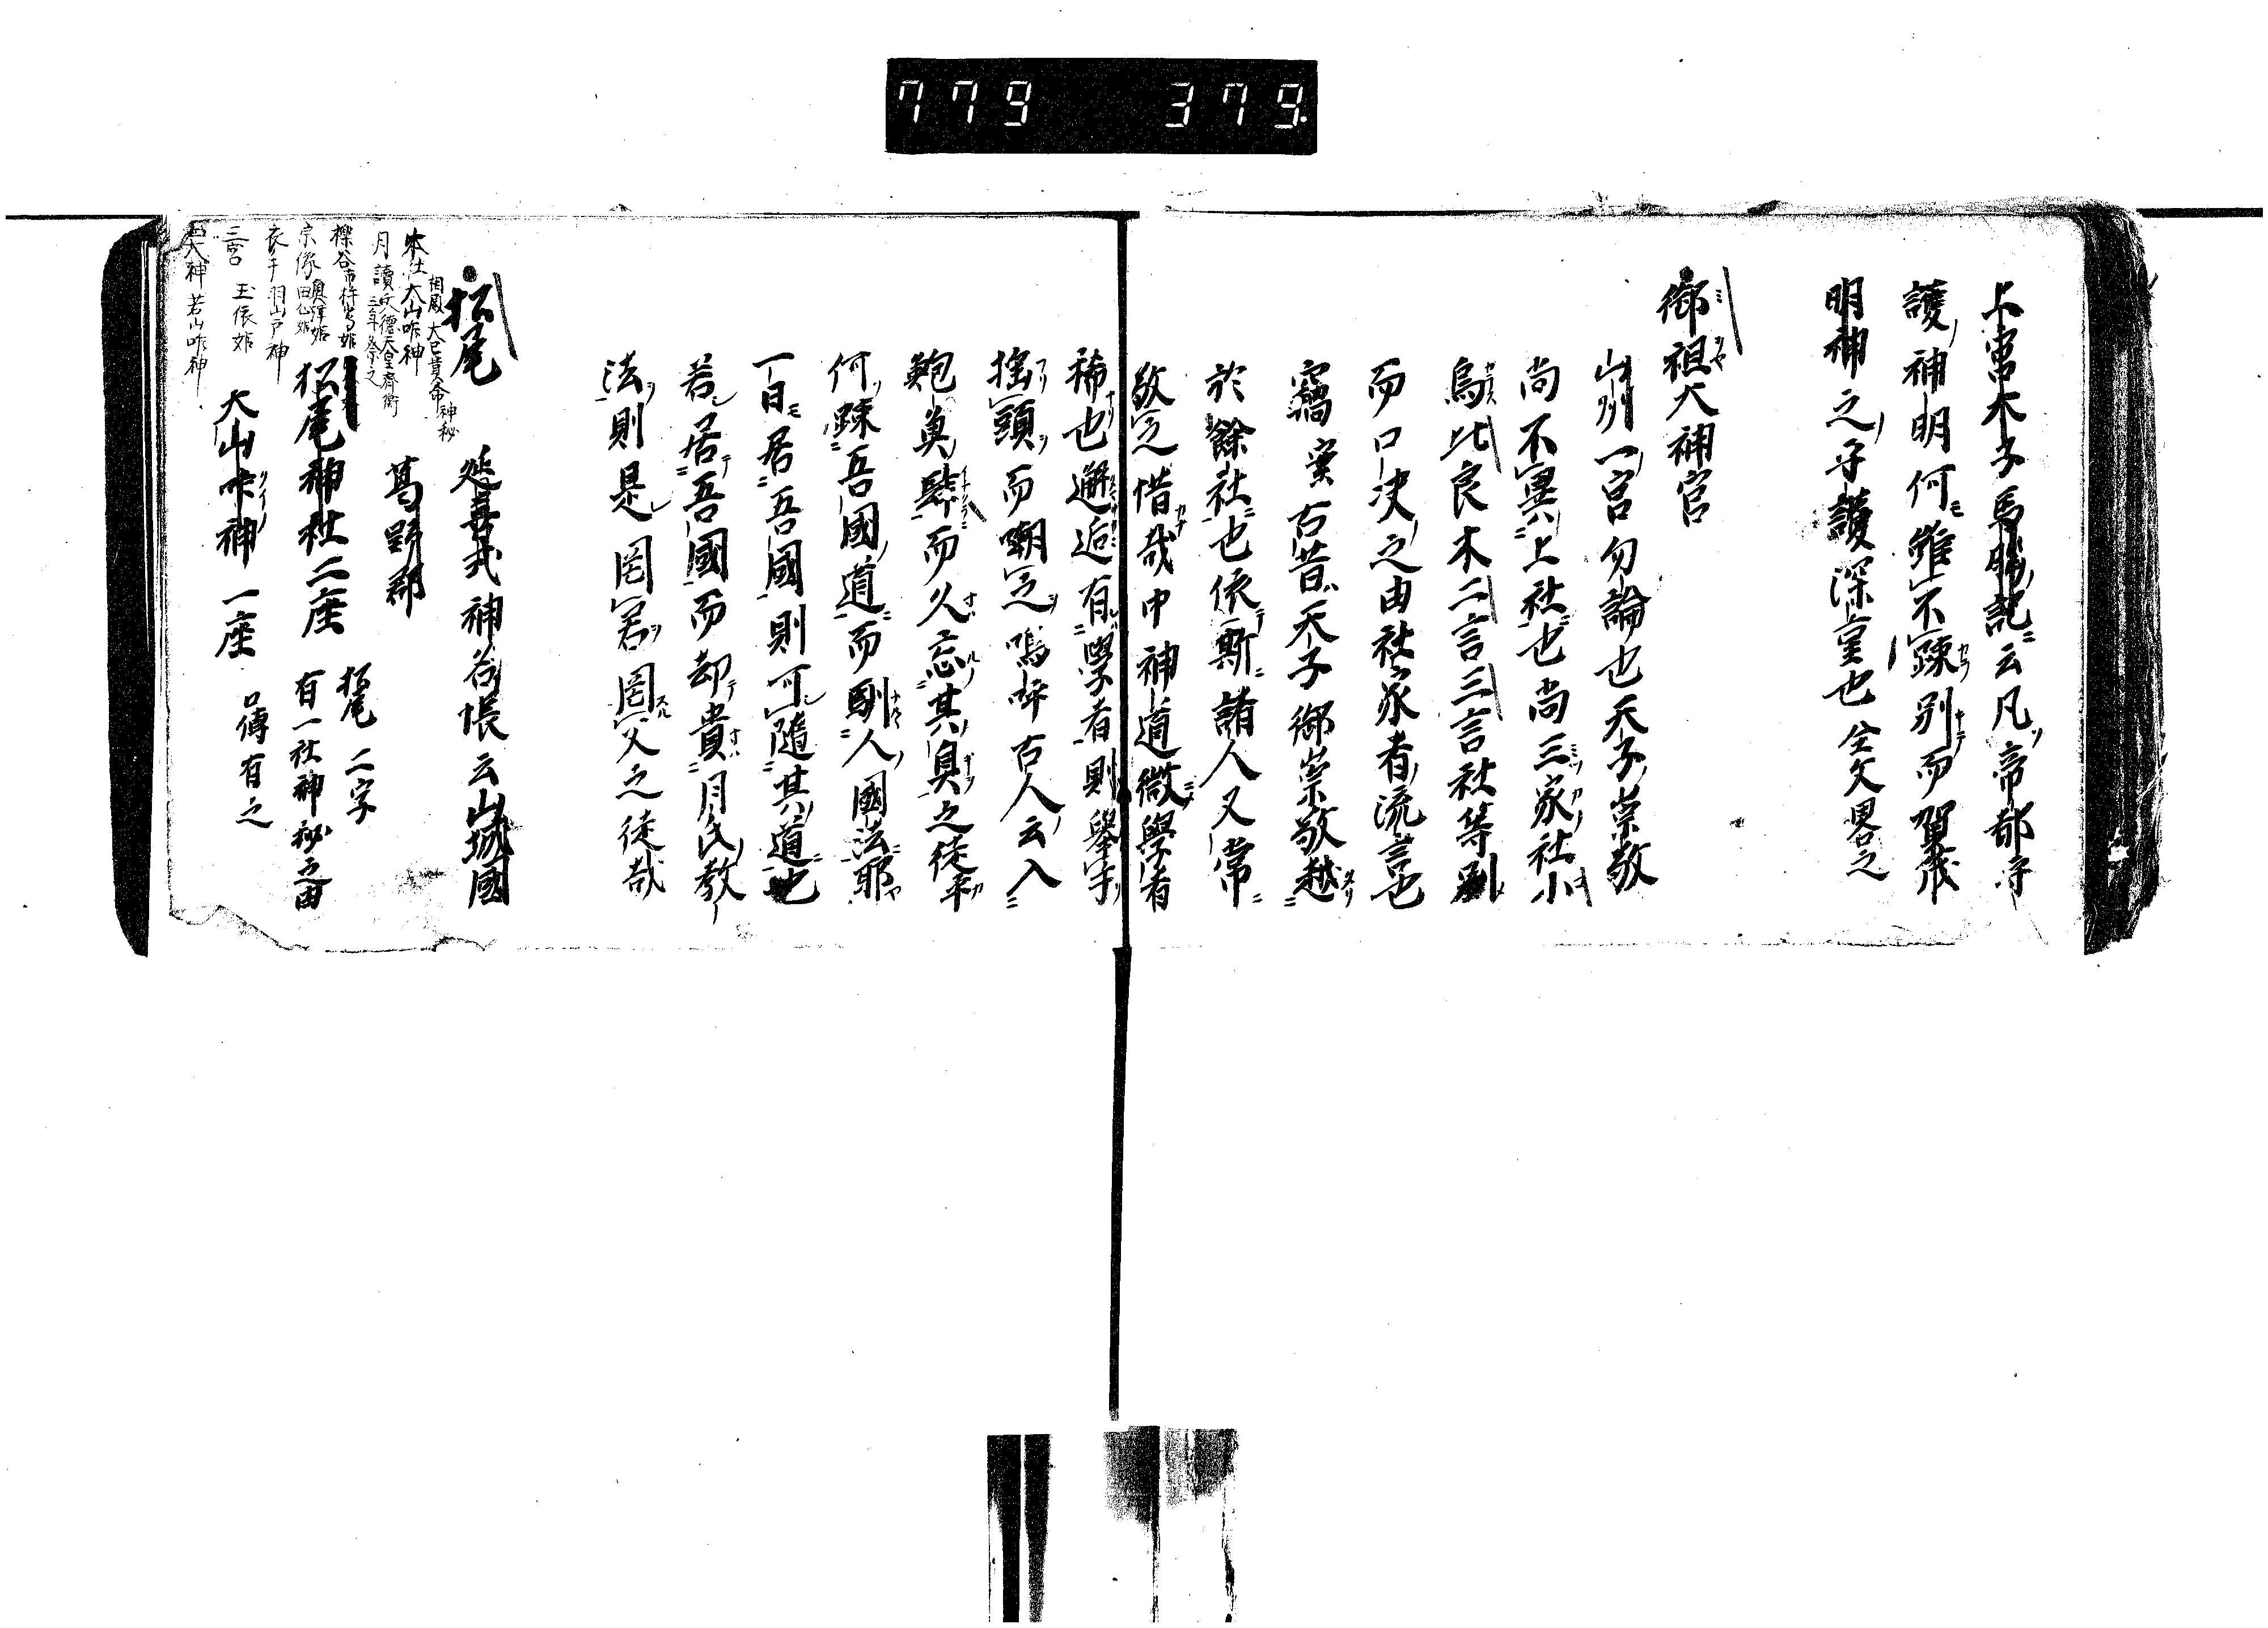 779 379
上宮木子馬勝記云凡帝都守
護神明何雖不疎別而賀茂
明神之守護深重也 全文畧之
御祖大神宮
山州一宮勿論也天子崇敬
尚不異上社也尚三家社小
烏比良木二言三言社等別
而口决之由社家者流言也
竊案古昔天子御崇敬越
於餘社也依斯諸人又常
敬之惜哉中神道微學者
稀也邂逅有學者則舉手
搖頭而嘲之嗚呼古人云入
鮑魚肆而久忘其臭之徒乎
何疎吾國道而馴人國法耶
一日居吾國則可隨其道也
若居吾國而却貴月氏教
法則是罔君罔父之徒哉
松尾 延喜式神名帳云山城國
相殿 大己貴命 神秘
本社 大山咋神
月讀 文德天皇齊衡
三年祭之
櫟谷 市杵嶋姫
宗像 奥津姫
田心姫
衣手 羽山戸神
三宮 玉依姫
四大神 若山咋神
葛野郡
松尾神社二座 松尾二字
有一社神秘之由
大山咋神一座 口傳有之